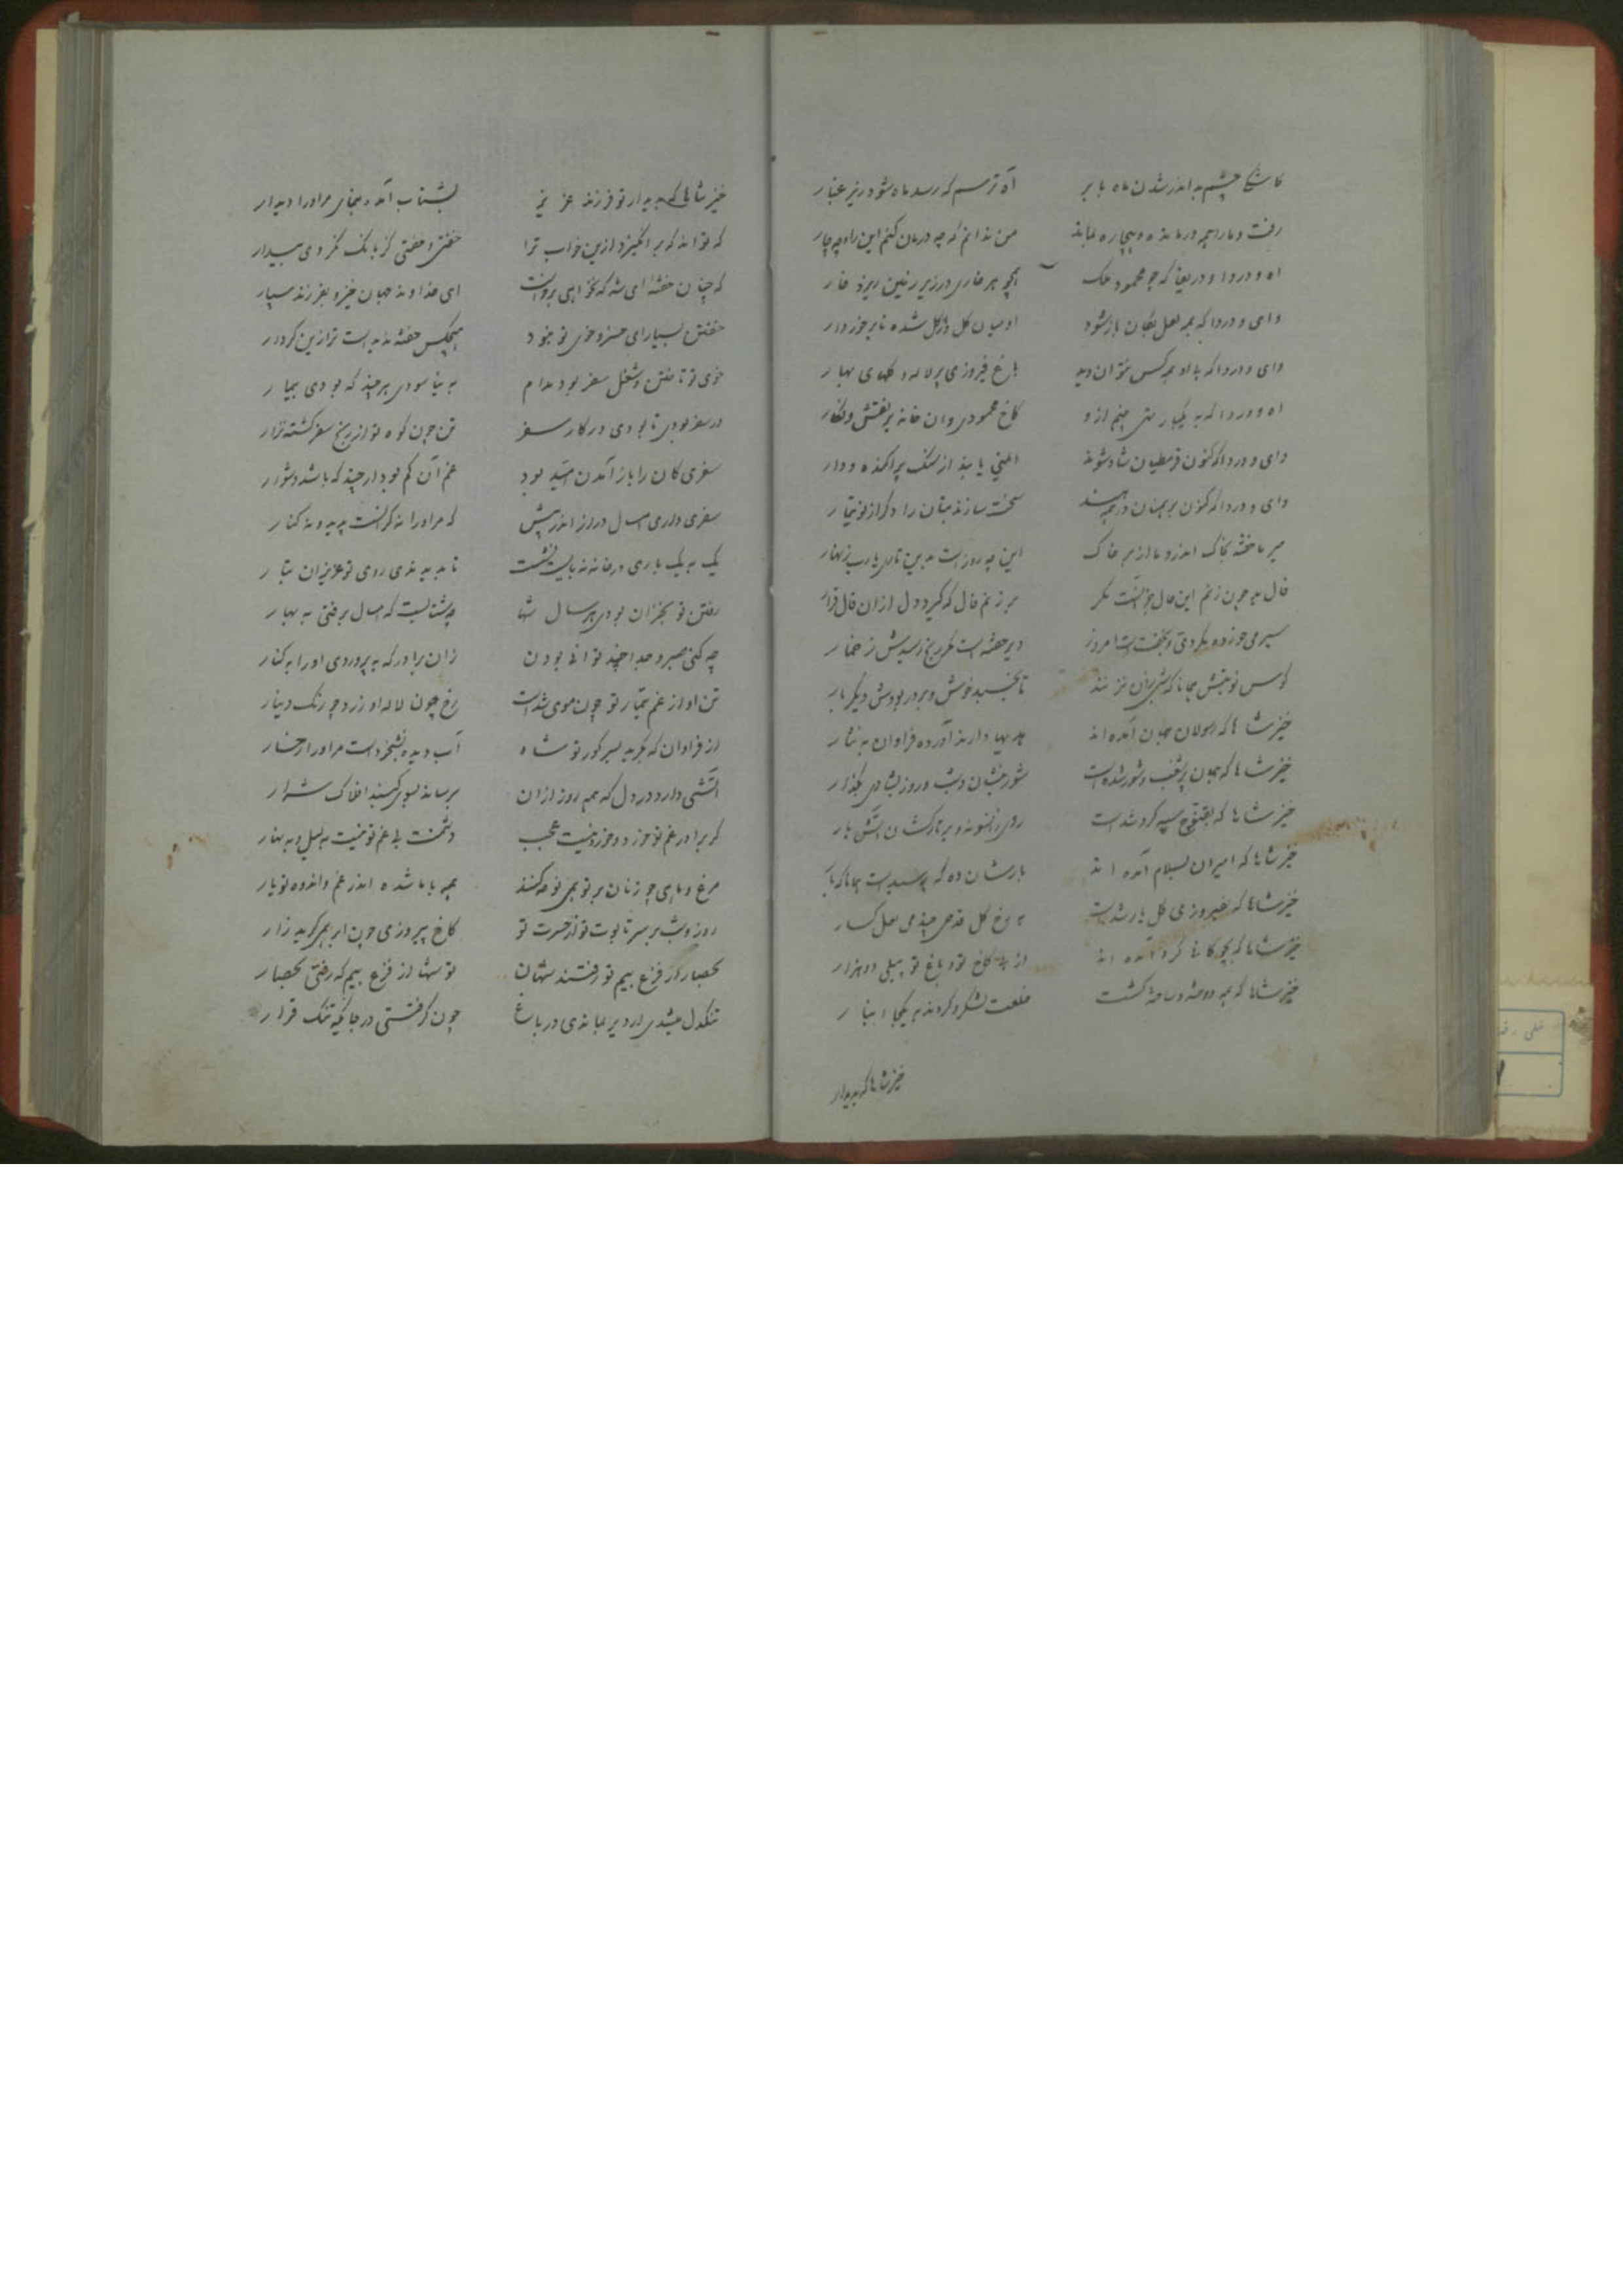 کاشکی چشم بد اندر نشدی ماه بابر آه ترسم که رسد ماه شود زیر غبار
رفت و ما را همه درمانده و بیچاره بماند من ندانم که چه درمان کنم این را و چه چار
آه و دردا و دریغا که چو محمود ملک همچو هر خاری در زیر زمین ریزد خار
وای و دردا که همه لعل بکان باز شود او میان کل و از کل شده نابرخوردار
وای و دردا که با او همه کس نتوان دید باغ فیروزی پر لاله و کلهای بهار
آه و دردا که به یکبار تهی بینم از و کاخ محمودی و ان خانه پر نقش و نکار
وای و دردا که کنون قرمطیان شاد شوند ایمنی یابند از سنک پراکنده و دار
وای و دردا که کنون برهمنان در همه هند سخت سازند بتان را دکر از نو تیمار
میر ما خفته بخاک اندر و ما از بر خاک این چه روز است بدین تاری یا رب زنهار
فال بد چون زنم این حال جز اینست مکر بر زنم فال که کیرد دل از ان فال قرار
سیر می خورده مکر دی و بخفتست امروز دیر خفته است مکر رنج رسیدش ز خمار
کوس نوبتش همانا که نمی زان نزنند تا بخسبد خوش و بر در بودش دیکر بار
خیز شاها که رسولان جهان آمده اند هدیها دارند آورده فراوان به نثار
خیز شاها که جهان پر شغب و شور شده است شور بنشان و شب و روز بشادی بکذار
خیز شاها که بقنوج سپه کرد شده است روی زانسو نه و بر تارکشان آتش بار
خیز شاها که امیران بسلام آمده اند بارشان ده که رسیدست همانا که بار
خیز شاها که بفیروزی کل باز شده است بر رخ کل قدحی چند می لعل کسار
خیز شاها که بچوکانی کرد آمده اند از پی کاخ تو و باغ تو پیلی دو هزار
خیز شاها که همه دوخته و ساخته کشت خلعت لشکر و کردند به یکجا انبار
خیز شاها که بدیدار
خیز شاها که به دیدار تو فرزند عزیز بشتاب آمد بنمای مر او را دیدار
که تواند که بر انکیزد ازین خواب ترا خفتی و خفتی کز بانک نکردی بیدار
که چنان خفته ای شه که نخواهی برخاست ای خداوند جهان خیز و بفرزند سپار
خفتن بسیار ای خسرو خوی تو نبود هیچکس خفته ندیدست ترا زین کردار
خوی تو تاختن و شغل سفر بود مدام به نیاسودی هر چند که بودی بیمار
در سفر بودی تا بودی در کار سفر تن چون کوه تو از رنج سفر کشته نزار
سفری کان را باز آمدن امید بود غم آن کم بود ار چند که باشد دشوار
سفری داری امسال دراز اندر پیش که مر او را نه کرانست پدید و نه کنار
یک به یک باری در خانه نبایست نشست تا بدیدندی روی تو عزیزان تبار
رفتن تو بخزان بودی هر سال شها چه شتابست که امسال برفتی به بهار
چه کنی صبر و جدا چند توانی بودن زان برادر که به پروردی او را بکنار
تن او از غم تیمار تو چون موی شدست رخ چون لاله او زرد چو رنک دینار
از فراوان که بکرید بسر کور تو شاه آب دیده بشخودست مر او را رخسار
آتشی دارد در دل که همه روز از ان برساند بسوی کنبد افلاک شرار
کر برادر غم تو خورد و خورد نیست عجب دشمنت بی غم تو نیست به لیل و به نهار
مرغ و ماهی چو زنان بر تو همی نوحه کنند همه با ما شده اندر غم و اندوه تو یار
روز و شب بر سر تابوت تو از حسرت تو کاخ پیروزی چون ابر همی کرید زار
بحصار از فزع بیم تو رفتند شهان تو شها از فزع بیم که رفتی بحصار
تنکدل میشدی ار دیر بماندی در باغ چون کرفتستی در جایکه تنک قرار